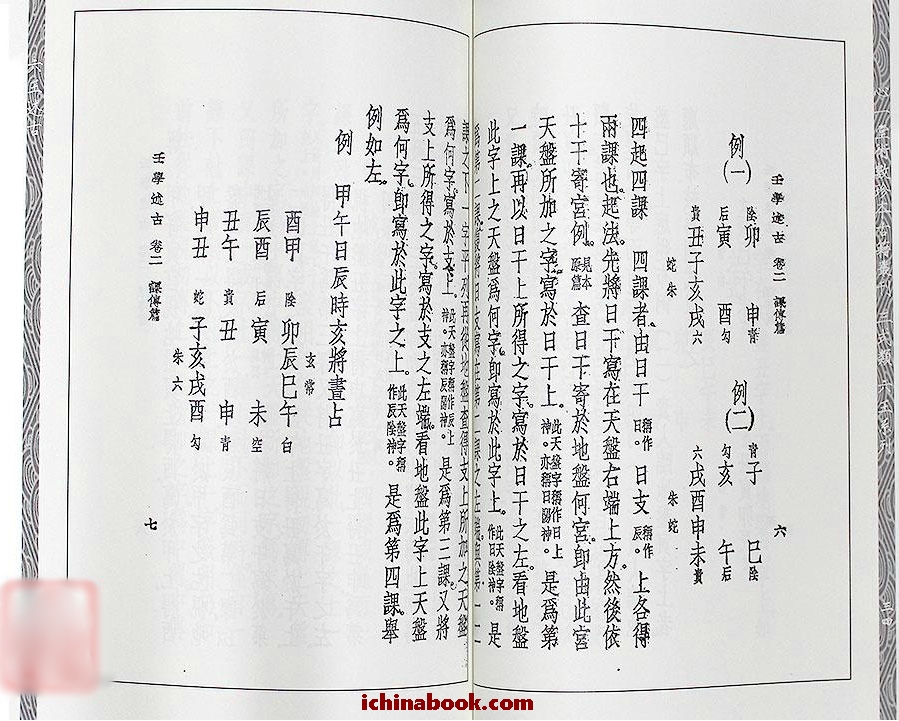 壬學述古 卷二 課傳篇 六
例(一)
陰卯 申青
后寅 酉勾
貴丑子亥戌六
蛇朱
例(二)
青子 巳陰
勾亥 午后
六戌酉申未貴
朱蛇
四起四課 四課者。由日干 稱作日。 日支 稱作辰。 上各得
兩課也。起法。先將日干寫在天盤右端上方。然後依
十干寄宮例。見本原篇 查日干寄於地盤何宮。即由此宮
天盤所加之字。寫於日干上。此天盤字稱作日上神。亦稱日陽神。 是為第
一課。再以日干上所得之字。寫於日干之左。看地盤
此字上之天盤為何字。即寫於此字上。此天盤字稱作日陰神。 是
為第二課。復將日支寫在第二課之左端。與第一二
課之下一字平列。再從地盤查得支上所加之天盤
為何字。寫於支上。此天盤字稱作辰上神。亦稱辰陽神。 是為第三課。又將
支上所得之字。寫於支之左端。看地盤此字上天盤
為何字。即寫於此字之上。此天盤字稱作辰陰神。 是為第四課。舉
例如左。
例 甲午日辰時亥將晝占
玄常
酉甲 陰卯辰巳午白
辰酉 后寅 未空
丑午 貴丑 申青
申丑 蛇子亥戌酉勾
朱六
壬學述古 卷二 課傳篇 七
ichinabook.com